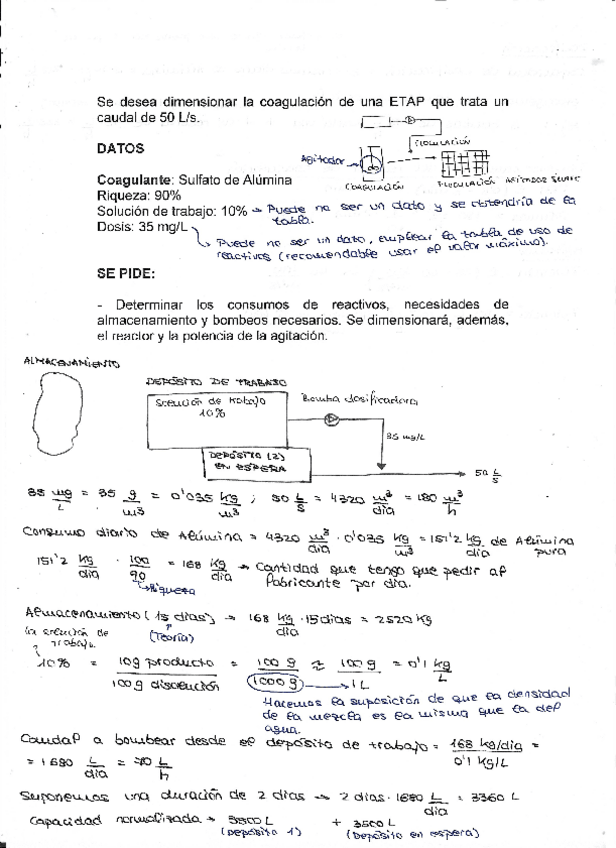 Se desea dimensionar la coagulación de una ETAP que trata un
caudal de 50 L/s.
FLOCULACIÓN
DATOS
Agitador
COAGULACIÓN
FLOCULACIÓN
Coagulante: Sulfato de Alúmina
Riqueza: 90%
Solución de trabajo: 10% → Puede no ser un dato y se obtendría de la
tabla.
Dosis: 35 mg/L
↳ Puede no ser un dato, emplear la tabla de uso de
reactivos (recomendable usar el valor máximo).
SE PIDE:
- Determinar los consumos de reactivos, necesidades de
almacenamiento y bombeos necesarios. Se dimensionará, además,
el reactor y la potencia de la agitación.
ALMACENAMIENTO
DEPÓSITO DE TRABAJO
Solución de trabajo
10%
Bomba dosificadora
35 mg/L
DEPÓSITO (2)
EN ESPERA
50 L/s
35 mg/L = 35 g/m³ = 0'035 kg/m³ ; 50 L/s = 4320 m³/dia = 180 m³/h
Consumo diario de Alúmina = 4320 m³/dia · 0'035 kg/m³ = 151'2 kg/dia de Alúmina
pura
151'2 kg/dia · 100/90 = 168 kg/dia → Cantidad que tengo que pedir al
fabricante por dia.
↳ Riqueza
Almacenamiento (15 dias) → 168 kg/dia · 15 dias = 2520 kg
(Teoría)
la solución de
trabajo.
10% = 10g producto/100g disolución = 100 g/1000 g ≈ 100 g/1 L = 0'1 kg/L
Hacemos la suposición de que la densidad
de la mezcla es la misma que la del
agua.
Caudal a bombear desde el depósito de trabajo = 168 kg/dia / 0'1 kg/L =
= 1680 L/dia = 70 L/h
Suponemos una duración de 2 dias → 2 dias · 1680 L/dia = 3360 L
Capacidad normalizada → 3500 L + 3500 L
(Depósito 1) (Depósito en espera)